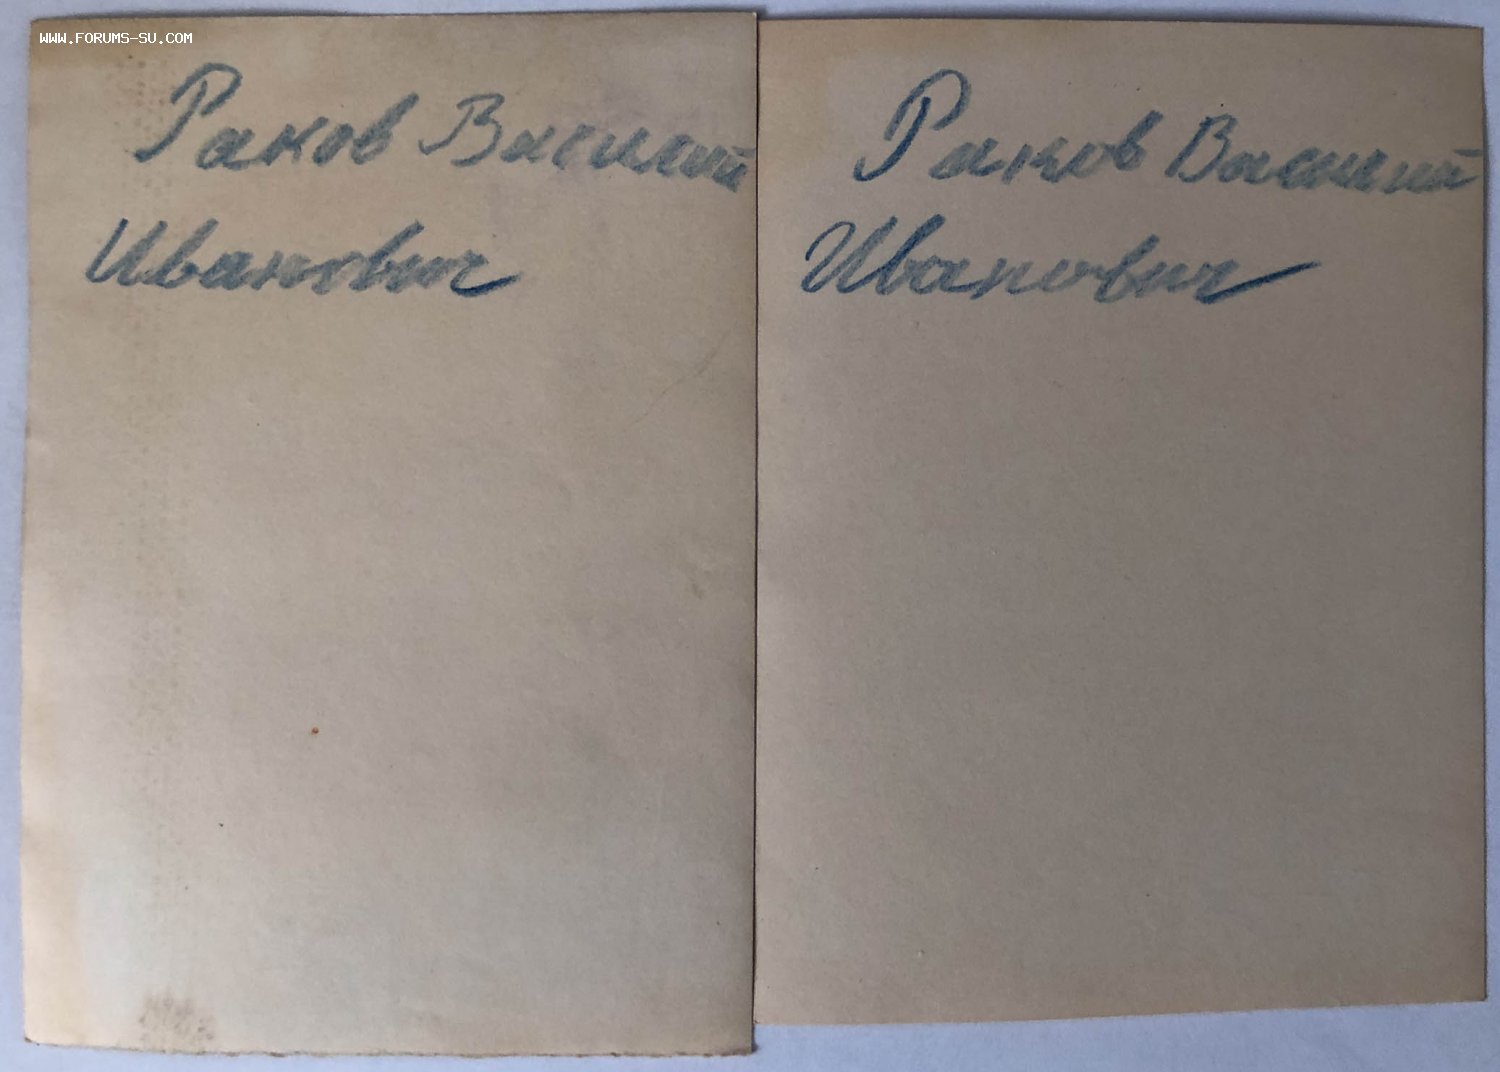 WWW.FORUMS-SU.COM
Раков Василий
Иванович
Раков Василий
Иванович